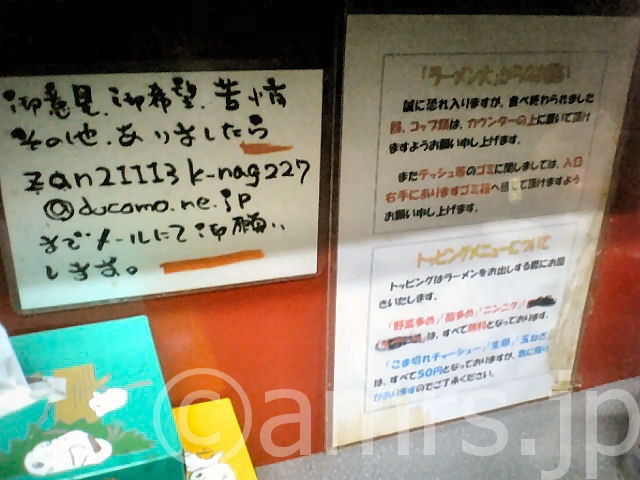 御意見、御希望、苦情
その他、ありましたら
zan21113k-nag227
@ducomo.ne.jp
までメールにて御願い
します。
「ラーメン大」からのお願い
誠に恐れ入りますが、食べ終わられました
器、コップ類は、カウンターの上に置いて頂け
ますようお願い申し上げます。
またテッシュ等のゴミに関しましては、入口
右手にありますゴミ箱へ捨して頂けますよう
お願い申し上げます。
トッピングメニューについて
トッピングはラーメンをお出しする際にお聞
きいたします。
「野菜多め」「脂多め」「ニンニク」
は、すべて無料となっております。
「こま切れチャーシュー」「生卵」「玉ねぎ」
は、すべて50円となっておりますが、数に限り
がありますのでご了承ください。
©amrs.jp